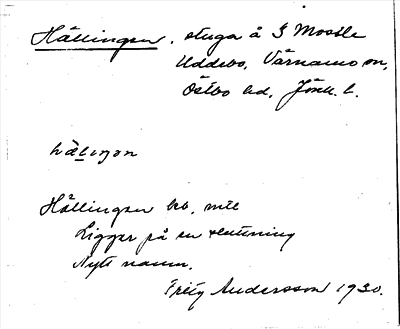 Hällingen, stuga å S Mosslе
Uddebo, Värnamo sn,
Östbo hd, Jönk. l.
Hällingen beb, mtl
Ligger på en sluttning
Nytt namn.
Fritz Andersson 1930.